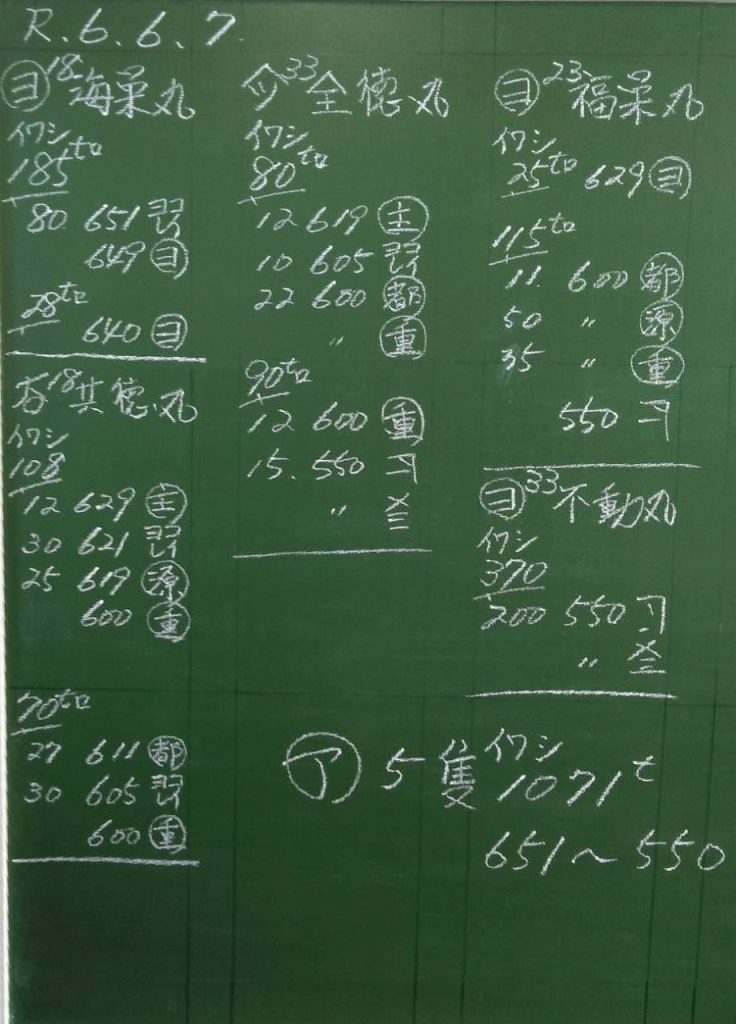 R.6.6.7.
㋵ 18 海栄丸
イワシ
185トロ
80 651
649 ㋵
28トロ
640 ㋵
18 共徳丸
イワシ
108
12 629 主
30 621
25 619 源
600 重
70トロ
27 611 都
30 605
600 重
33 全徳丸
イワシ
80トロ
12 619 主
10 605
22 600 都
〃 重
90トロ
12 600 重
15. 550
〃
㋵ 23 福栄丸
イワシ
25トロ 629 ㋵
115トロ
11. 600 都
50 〃 源
35 〃 重
550
㋵ 33 不動丸
イワシ
370
200 550
〃
5隻 イワシ 1071t
651〜550